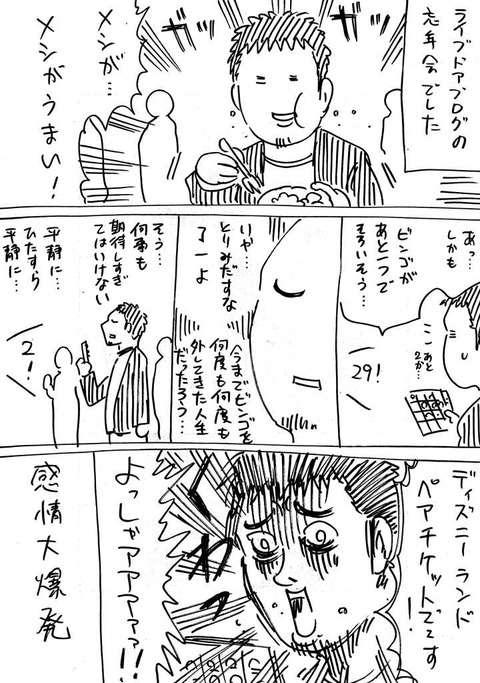 ライブドアブログの
忘年会でした
ガツ
ガツ
メシが…
メシがうまい!
あっ…
しかも
ビンゴが
あと一つで
そろいそう…
ここあと
2か…
29!
いや…
とりみだすな
了一よ
今までビンゴを
何度も何度も
外してきた人生
だったろう…
そう…
何事も
期待しすぎ
てはいけない
平静に…
ひたすら
平静に…
2!
ディズニーランド
ペアチケットでです!
くわっ
よっしゃアアアアァッ!!
感情大爆発